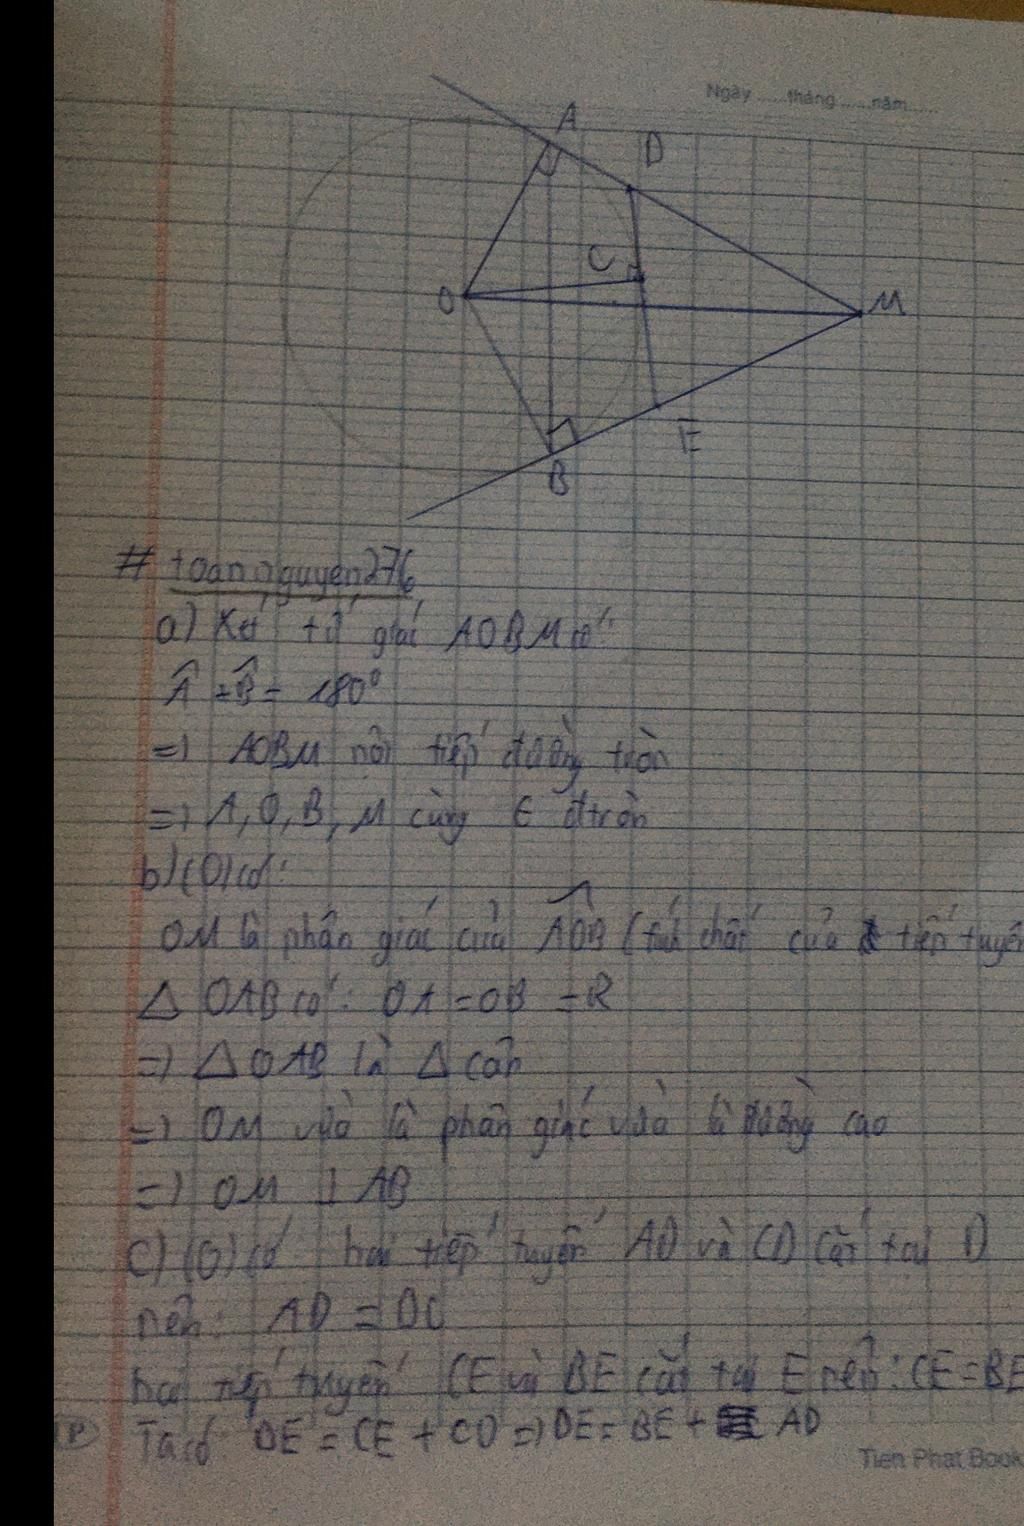 Ngày ......tháng ......năm ......
A
D
C
O
M
E
B
# toannguyen276
a) Xét tứ giác AOBM có:
Â + B̂ = 180°
=> AOBM nội tiếp đường tròn
=> A, O, B, M cùng ∈ đtròn
b) (O) có:
OM là phân giác của AÔB (tính chất của tiếp tuyến
Δ OAB có: OA = OB = R
=> Δ OAB là Δ cân
=> OM vừa là phân giác vừa là đường cao
=> OM ⊥ AB
c) (O) có hai tiếp tuyến AD và CD cắt tại D
nên: AD = DC
hai tiếp tuyến CE và BE cắt tại E nên: CE = BE
Ta có DE = CE + CD => DE = BE + AD
Tien Phat Book